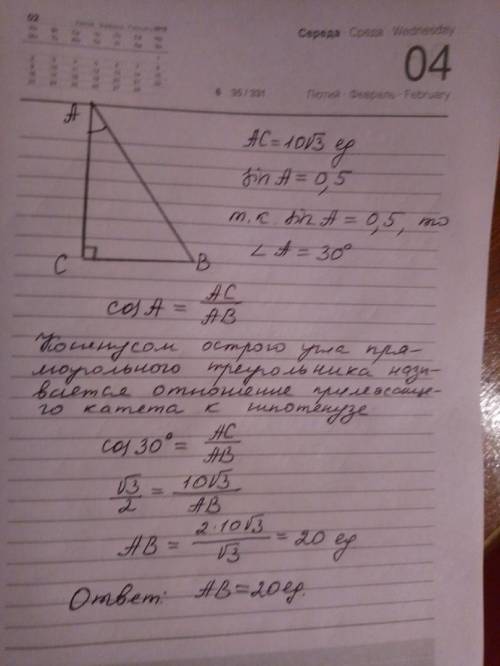 02
Середа · Среда · Wednesday
04
6 35 / 331
Лютий · Февраль · February
A
C
B
AC = 10√3 ед
sin A = 0,5
т.к. sin A = 0,5, то
∠A = 30°
cos A = AC/AB
Косинусом острого угла пря-
моугольного треугольника назы-
вается отношение прилежаще-
го катета к гипотенузе
cos 30° = AC/AB
√3/2 = 10√3/AB
AB = 2·10√3/√3 = 20 ед
Ответ: AB = 20 ед.